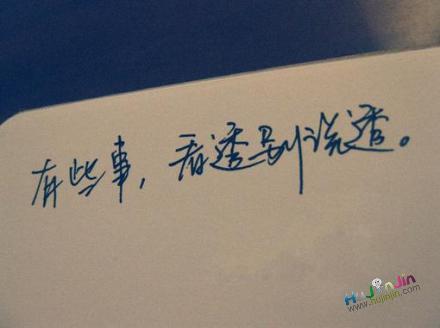 有些事，看透别说透。
HuJinJin
www.hujinjin.com